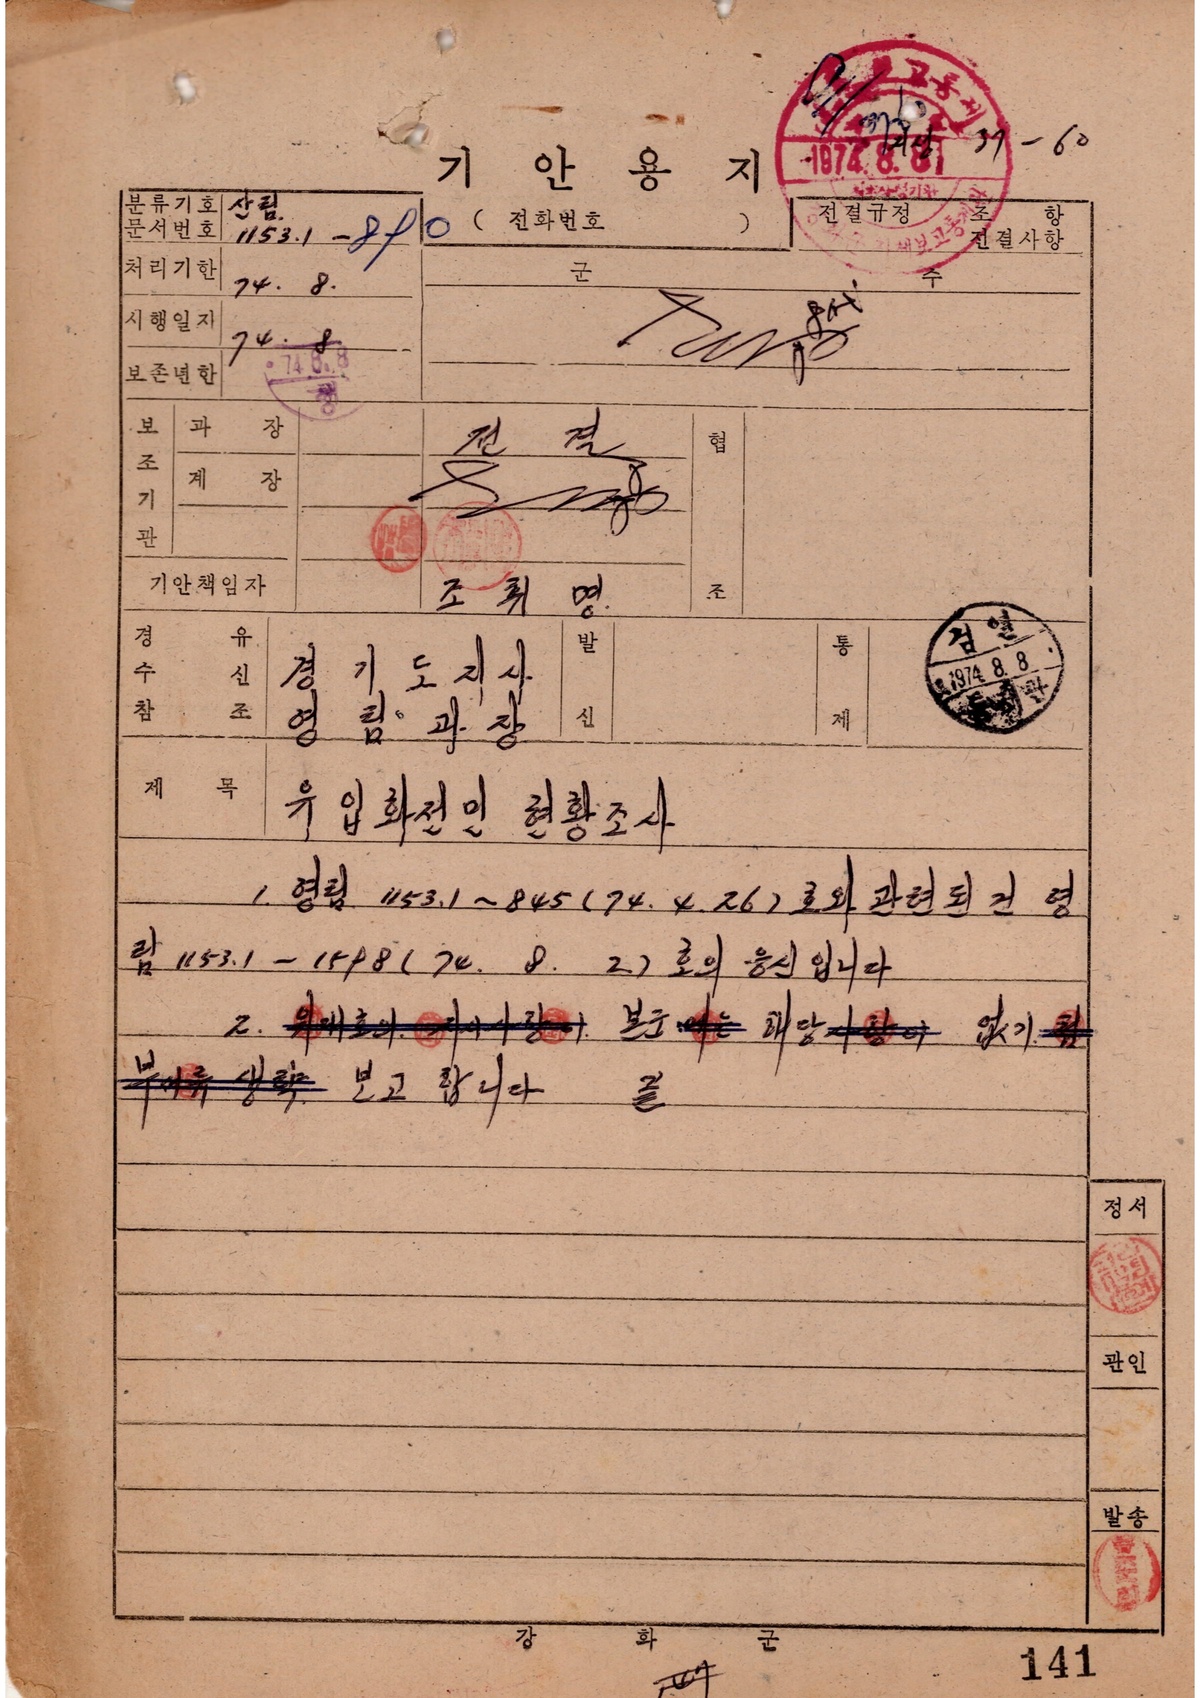 보고통제
1974. 8. 8
37-60
기 안 용 지
분류기호 산림
문서번호 1153.1 - 890
( 전화번호 )
전결규정 조 항
전결사항
처리기한 74. 8.
군 수
시행일자 74. 8
74. 8. 8
보존년한
보조기관
과 장 전 결
계 장
협 조
기안책임자 조 휘 명
경 유
수 신 경 기 도 지 사
참 조 영 림 과 장
발 신
통 제
검열
1974. 8. 8
통제관
제 목 유입화전민 현황조사
1. 영림 1153.1~845(74. 4. 26)호와 관련된 건 영
림 1153.1~1598(74. 8. 2)호의 응신입니다
2. 위대호의 지시사항이 본군에는 해당사항이 없기 첨
부서류 생략 보고합니다 끝
정서
관인
발송
강 화 군
141